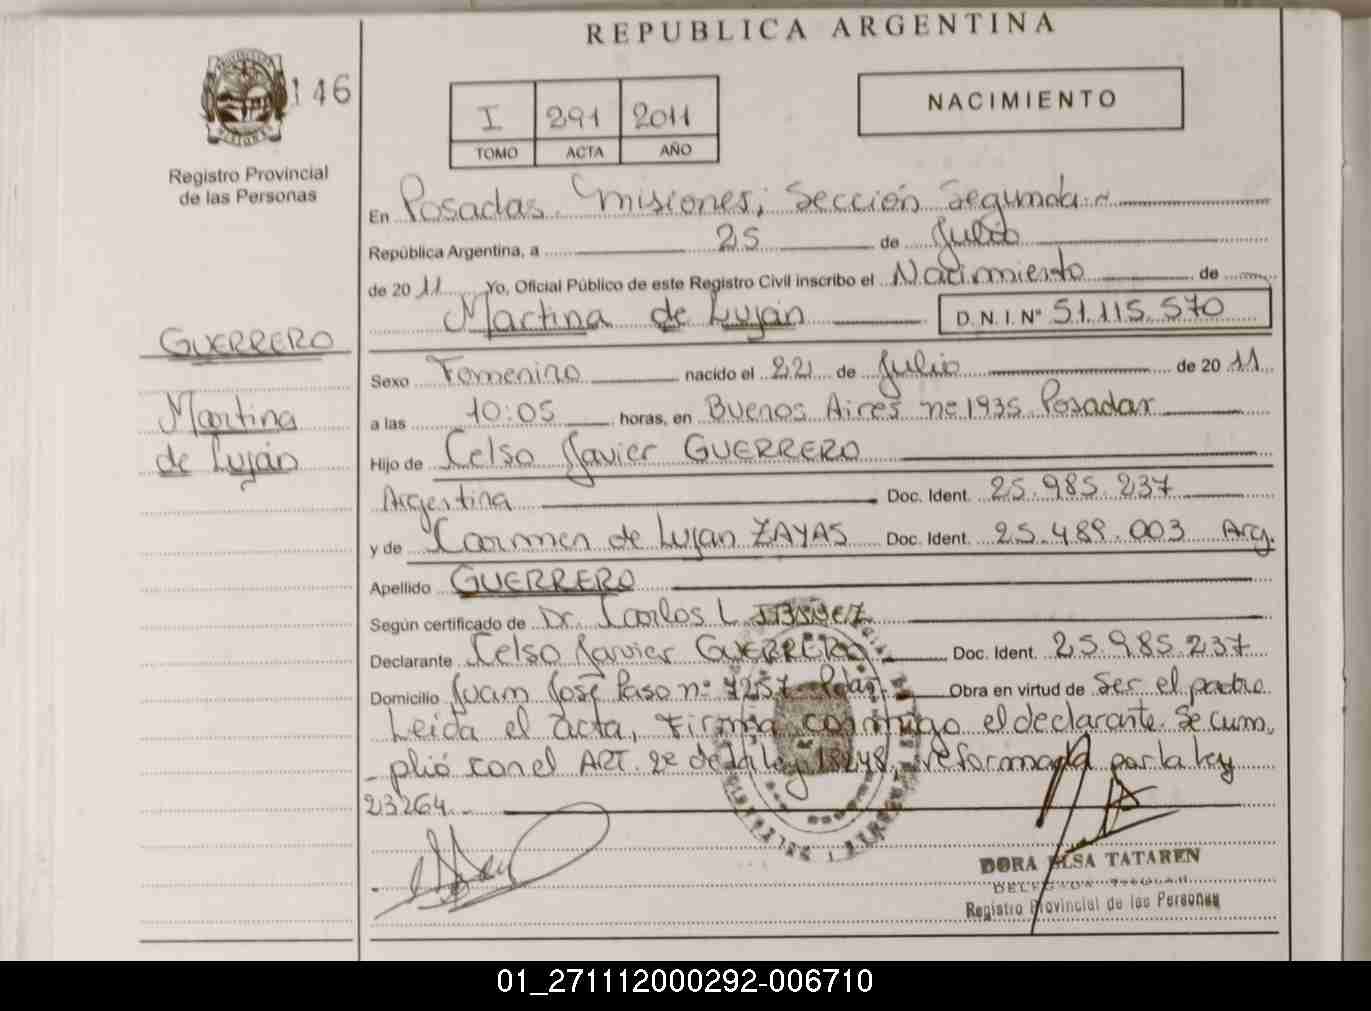 REPUBLICA ARGENTINA
146
Registro Provincial
de las Personas
I 291 2011
TOMO ACTA AÑO
NACIMIENTO
En Posadas. Misiones; Sección Segunda.
República Argentina, a 25 de Julio
de 2011 Yo, Oficial Público de este Registro Civil inscribo el Nacimiento de
Martina de Luján D.N.I.Nº 51.115.570
GUERRERO
Martina
de Luján
Sexo Femenino nacido el 22 de Julio de 2011
a las 10:05 horas, en Buenos Aires nº 1935 Posadas
Hijo de Celso Javier GUERRERO
Argentina Doc. Ident. 25.985.237
y de Carmen de Lujan ZAYAS Doc. Ident. 25.489.003 Arg.
Apellido GUERRERO
Según certificado de Dr. Carlos L
Declarante Celso Javier GUERRERO Doc. Ident. 25.985.237
Domicilio Juan José Paso nº 7257 Pdas Obra en virtud de Ser el padre
Leida el acta, firma conmigo el declarante. Se cum
plió con el ART. 2º de la ley 18248, reformada por la ley
23264.
DORA ELSA TATAREN
DELEGADA TITULAR
Registro Provincial de las Personas
01_271112000292-006710